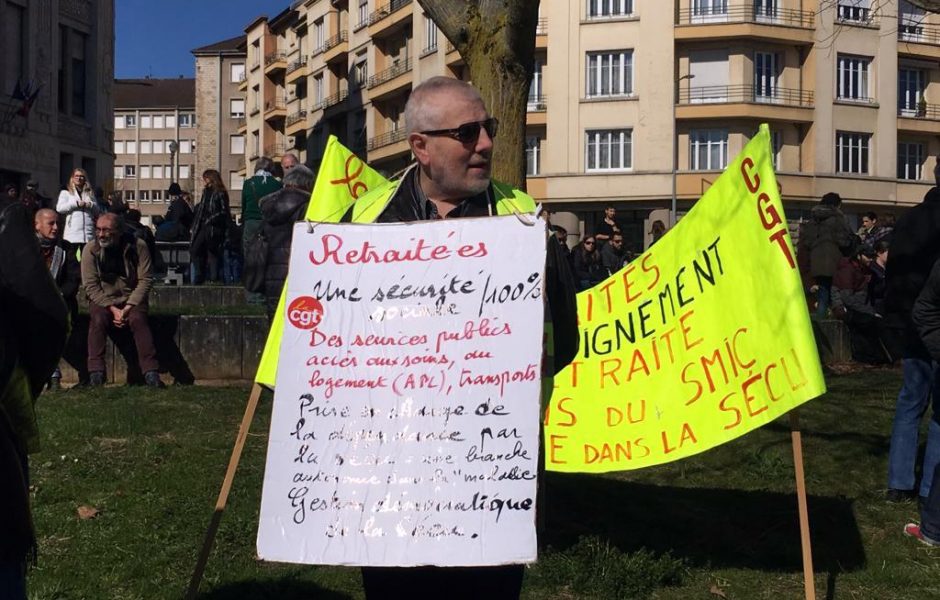 Retraité·es
Une sécurité /100%
sociale
La
cgt
Des services publics
accès aux soins, au
logement (APL), transports
Prise en charge de
la dépendance par
la sécu : une branche
autonomie dans la "maladie
Gestion démocratique
de la
CGT
ITES
IGNEMENT
RETRAITE
S DU SMIC
E DANS LA SÉCU